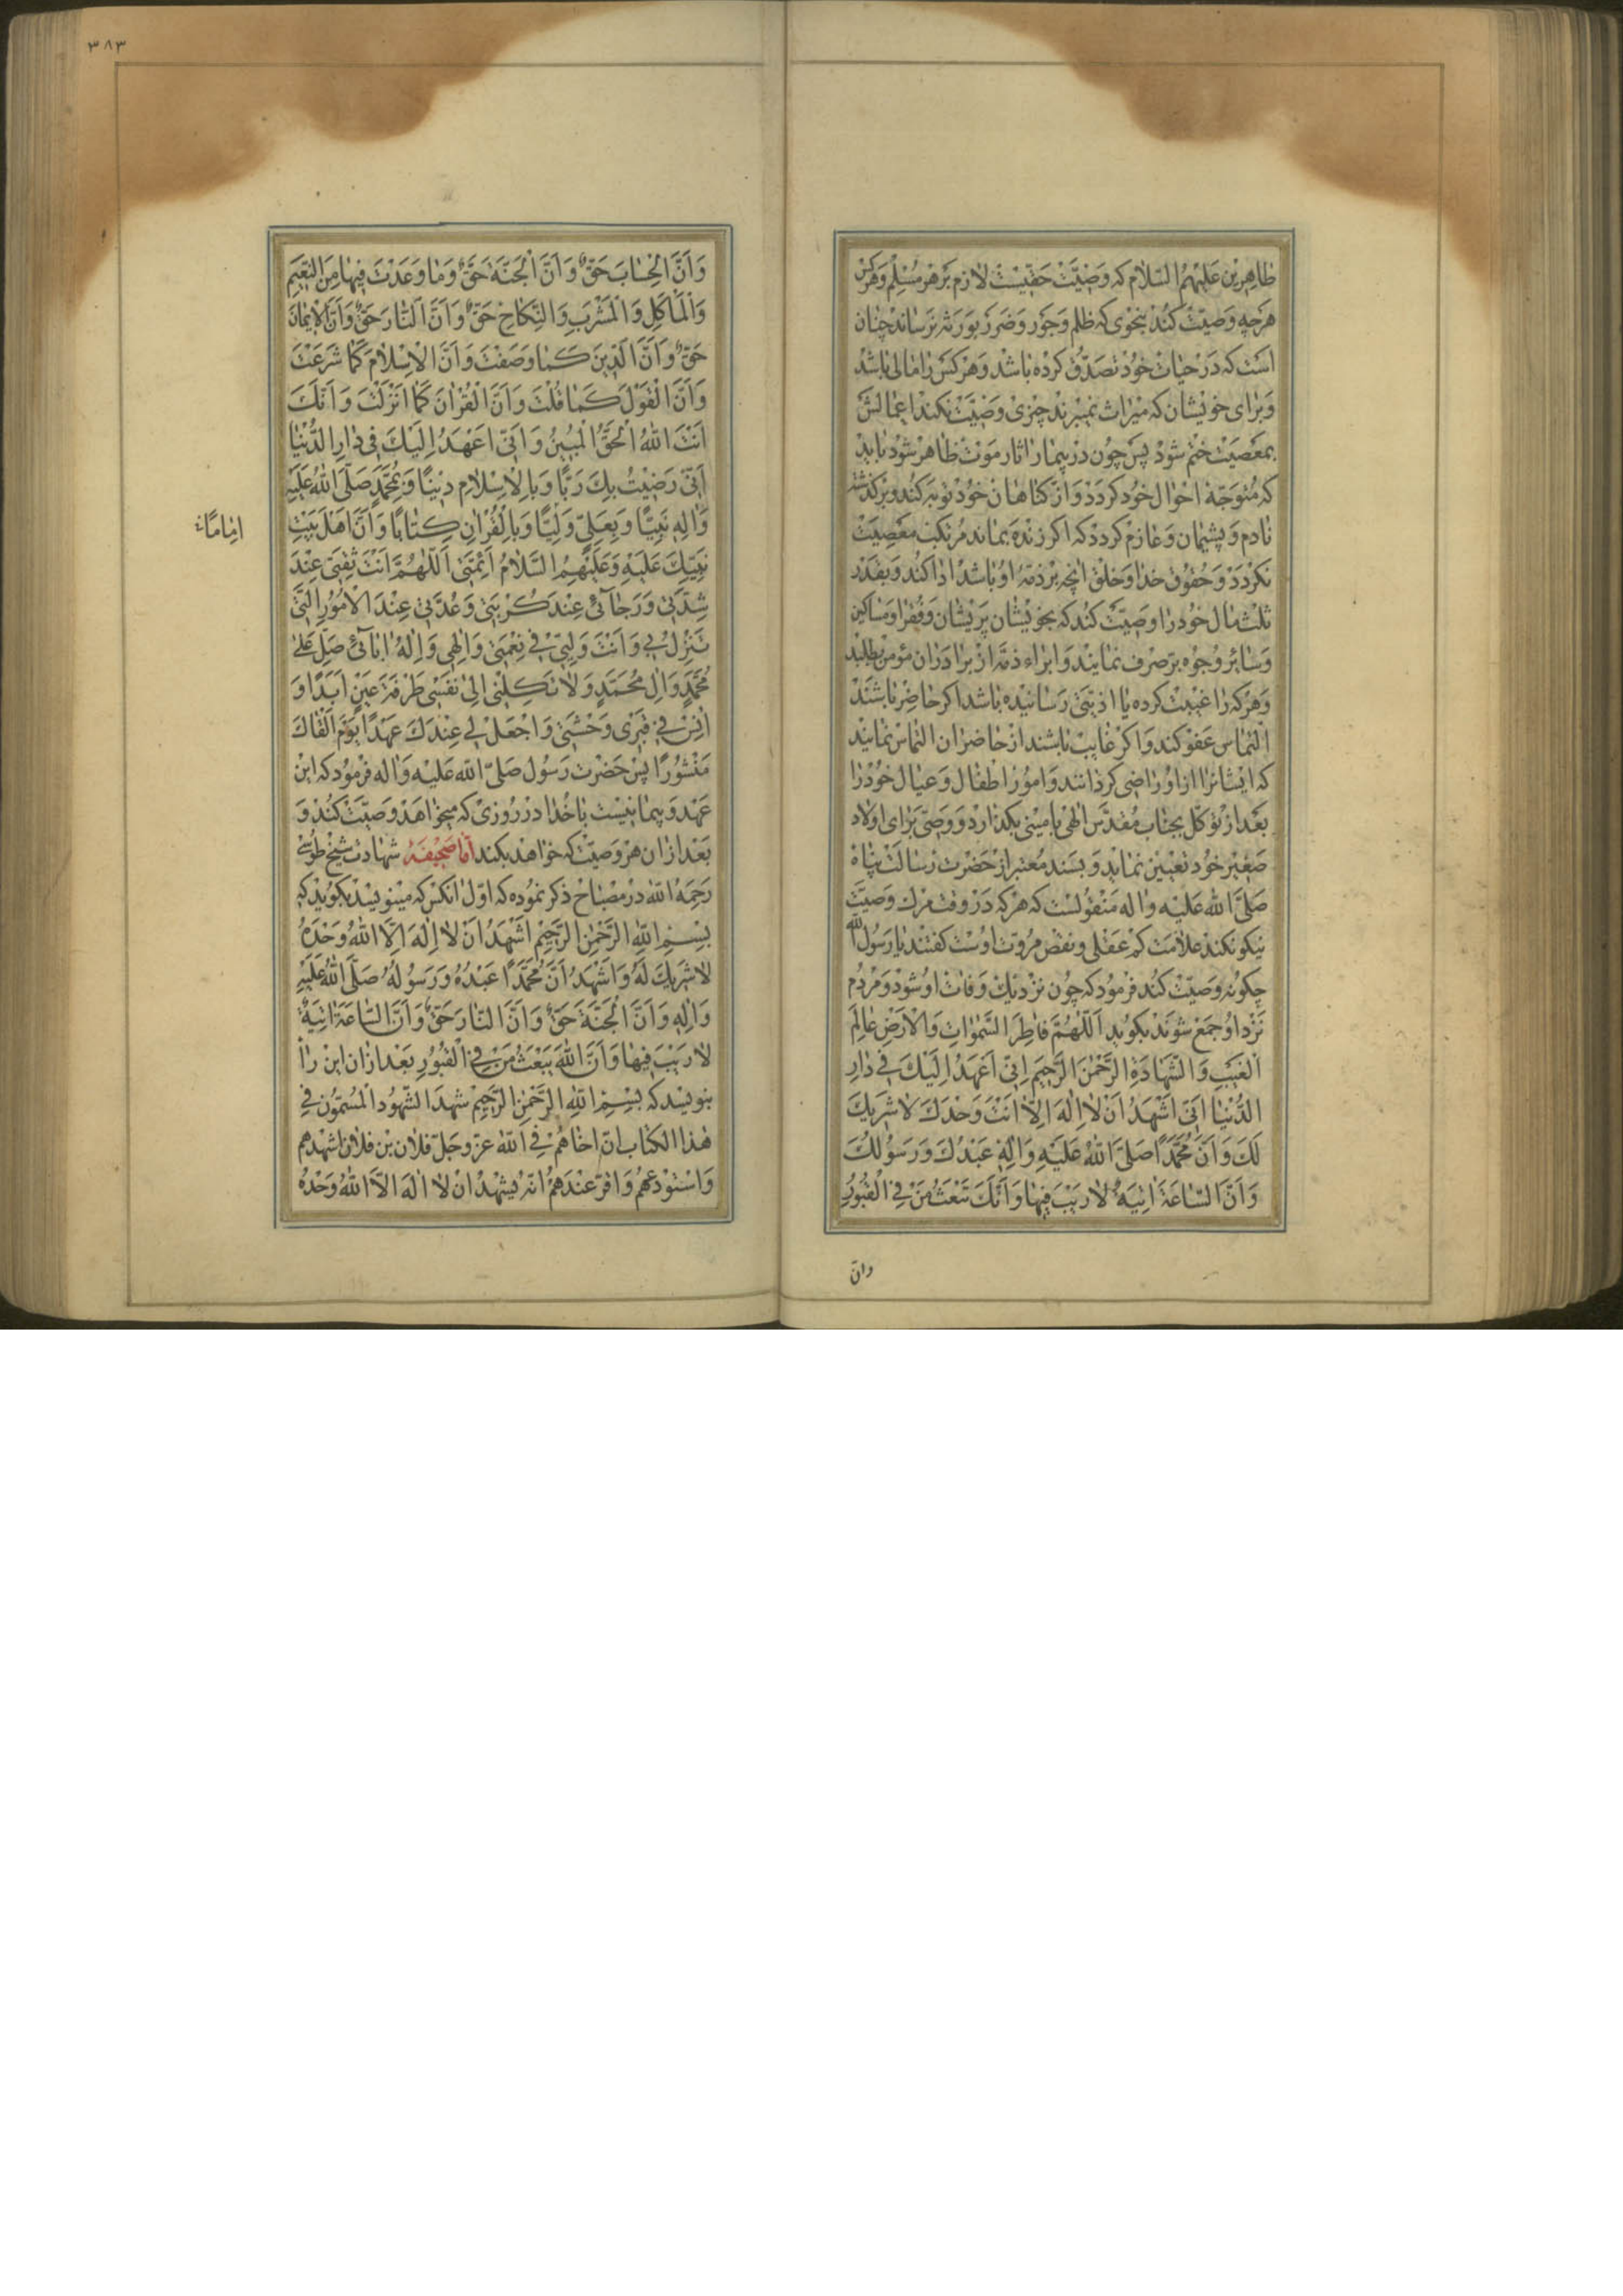 طاهرین علیهم السلام که وصیت حقیست لازم بر هر مسلم و هر کس
هر چه وصیت کند بنحوی که ظلم و جور و ضرر بورثه نرساند چنان
است که در حیات خود تصدق کرده باشد و هر کس را مالی باشد
و برای خویشان که میراث نمیبرند چیزی وصیت نکند اعمالش
بمعصیت ختم شود پس چون در بیمار اثار موت ظاهر شود باید
که متوجه احوال خود کردد و از کناهان خود توبه کند و بر کذشته
نادم و پشیمان و عازم کردد که اکر زنده بماند مرتکب معصیت
نکردد و حقوق خدا و خلق انچه بر ذمه او باشد ادا کند و بقدر
ثلث مال خود را وصیت کند که بخویشان پریشان و فقرا و مساکین
و سائر وجوه بر صرف نمایند و ابراء ذمه از برادران مؤمن بطلبد
و هر که را غیبت کرده یا اذیتی رسانیده باشد اکر حاضر باشند
التماس عفو کند و اکر غایب باشند از حاضران التماس نمایند
که ایشانرا از او راضی کردانند و امور اطفال و عیال خود را
بعد از توکل بجناب مقدس الهی بامینی بکذارد و وصی برای اولاد
صغیر خود تعیین نماید و بسند معتبر از حضرت رسالت پناه
صلی الله علیه واله منقولست که هر که در وقت مرك وصیت
نیکو نکند علامت کم عقلی و نقص مروت اوست کفتند یا رسول الله
چکونه وصیت کند فرمود که چون نزدیك وفات او شود و مردم
نزد او جمع شوند بکوید اَللّٰهُمَّ فَاطِرَ السَّمٰوَاتِ وَالْاَرْضِ عَالِمَ
الْغَیْبِ وَالشَّهَادَةِ الرَّحْمٰنَ الرَّحِیمَ اِنّی اَعْهَدُ اِلَیْكَ فی دَارِ
الدُّنْیَا اَنّی اَشْهَدُ اَنْ لَا اِلٰهَ اِلَّا اَنْتَ وَحْدَكَ لَا شَرِیكَ
لَكَ وَاَنَّ مُحَمَّدًا صَلَّی اللّٰهُ عَلَیْهِ وَاٰلِهِ عَبْدُكَ وَرَسُولُكَ
وَاَنَّ السَّاعَةَ اٰتِیَةٌ لَا رَیْبَ فِیهَا وَاَنَّكَ تَبْعَثُ مَنْ فِی الْقُبُورِ
وان
٣٨٣
وَاَنَّ الْحِسَابَ حَقٌّ وَاَنَّ الْجَنَّةَ حَقٌّ وَمَا وَعَدْتَ فِیهَا مِنَ النَّعِیمِ
وَالْمَاْكَلِ وَالْمَشْرَبِ وَالنِّكَاحِ حَقٌّ وَاَنَّ النَّارَ حَقٌّ وَاَنَّ الْاِیمَانَ
حَقٌّ وَاَنَّ الدّینَ كَمَا وَصَفْتَ وَاَنَّ الْاِسْلَامَ كَمَا شَرَعْتَ
وَاَنَّ الْقَوْلَ كَمَا قُلْتَ وَاَنَّ الْقُرْاٰنَ كَمَا اَنْزَلْتَ وَاَنَّكَ
اَنْتَ اللّٰهُ الْحَقُّ الْمُبِینُ وَاَنّی اَعْهَدُ اِلَیْكَ فی دَارِ الدُّنْیَا
اَنّی رَضِیتُ بِكَ رَبًّا وَبِالْاِسْلَامِ دِینًا وَبِمُحَمَّدٍ صَلَّی اللّٰهُ عَلَیْهِ
وَاٰلِهِ نَبِیًّا وَبِعَلِیٍّ وَلِیًّا وَبِالْقُرْاٰنِ كِتَابًا وَاَنَّ اَهْلَ بَیْتِ
اِمَامًا
نَبِیِّكَ عَلَیْهِ وَعَلَیْهِمُ السَّلَامُ اَئِمَّتی اَللّٰهُمَّ اَنْتَ ثِقَتی عِنْدَ
شِدَّتی وَرَجَائی عِنْدَ كُرْبَتی وَعُدَّتی عِنْدَ الْاُمُورِ الَّتی
تَنْزِلُ بی وَاَنْتَ وَلِیّی فی نِعْمَتی وَاِلٰهی وَاِلٰهُ اٰبَائی صَلِّ عَلٰی
مُحَمَّدٍ وَاٰلِ مُحَمَّدٍ وَلَا تَكِلْنی اِلٰی نَفْسی طَرْفَةَ عَیْنٍ اَبَدًا وَ
اٰنِسْ فی قَبْری وَحْشَتی وَاجْعَلْ لی عِنْدَكَ عَهْدًا یَوْمَ اَلْقَاكَ
مَنْشُورًا پس حضرت رسول صلی الله علیه واله فرمود که این
عهد و پیمانیست با خدا در روزی که میخواهد وصیت کند و
بعد از ان هر وصیت که خواهد بکند اما صحیفهٔ شهادت شیخ طوسی
رحمه الله در مصباح ذکر نموده که اول انکس که مینویسد بکوید که
بِسْمِ اللّٰهِ الرَّحْمٰنِ الرَّحِیمِ اَشْهَدُ اَنْ لَا اِلٰهَ اِلَّا اللّٰهُ وَحْدَهُ
لَا شَرِیكَ لَهُ وَاَشْهَدُ اَنَّ مُحَمَّدًا عَبْدُهُ وَرَسُولُهُ صَلَّی اللّٰهُ عَلَیْهِ
وَاٰلِهِ وَاَنَّ الْجَنَّةَ حَقٌّ وَاَنَّ النَّارَ حَقٌّ وَاَنَّ السَّاعَةَ اٰتِیَةٌ
لَا رَیْبَ فِیهَا وَاَنَّ اللّٰهَ یَبْعَثُ مَنْ فِی الْقُبُورِ بعد از ان این را
بنویسد که بِسْمِ اللّٰهِ الرَّحْمٰنِ الرَّحِیمِ شهد الشهود المسمون فی
هذا الکتاب ان اخاهم فی الله عز وجل فلان بن فلان اشهدهم
واستودعهم واقر عندهم انه یشهد ان لا اله الا الله وحده